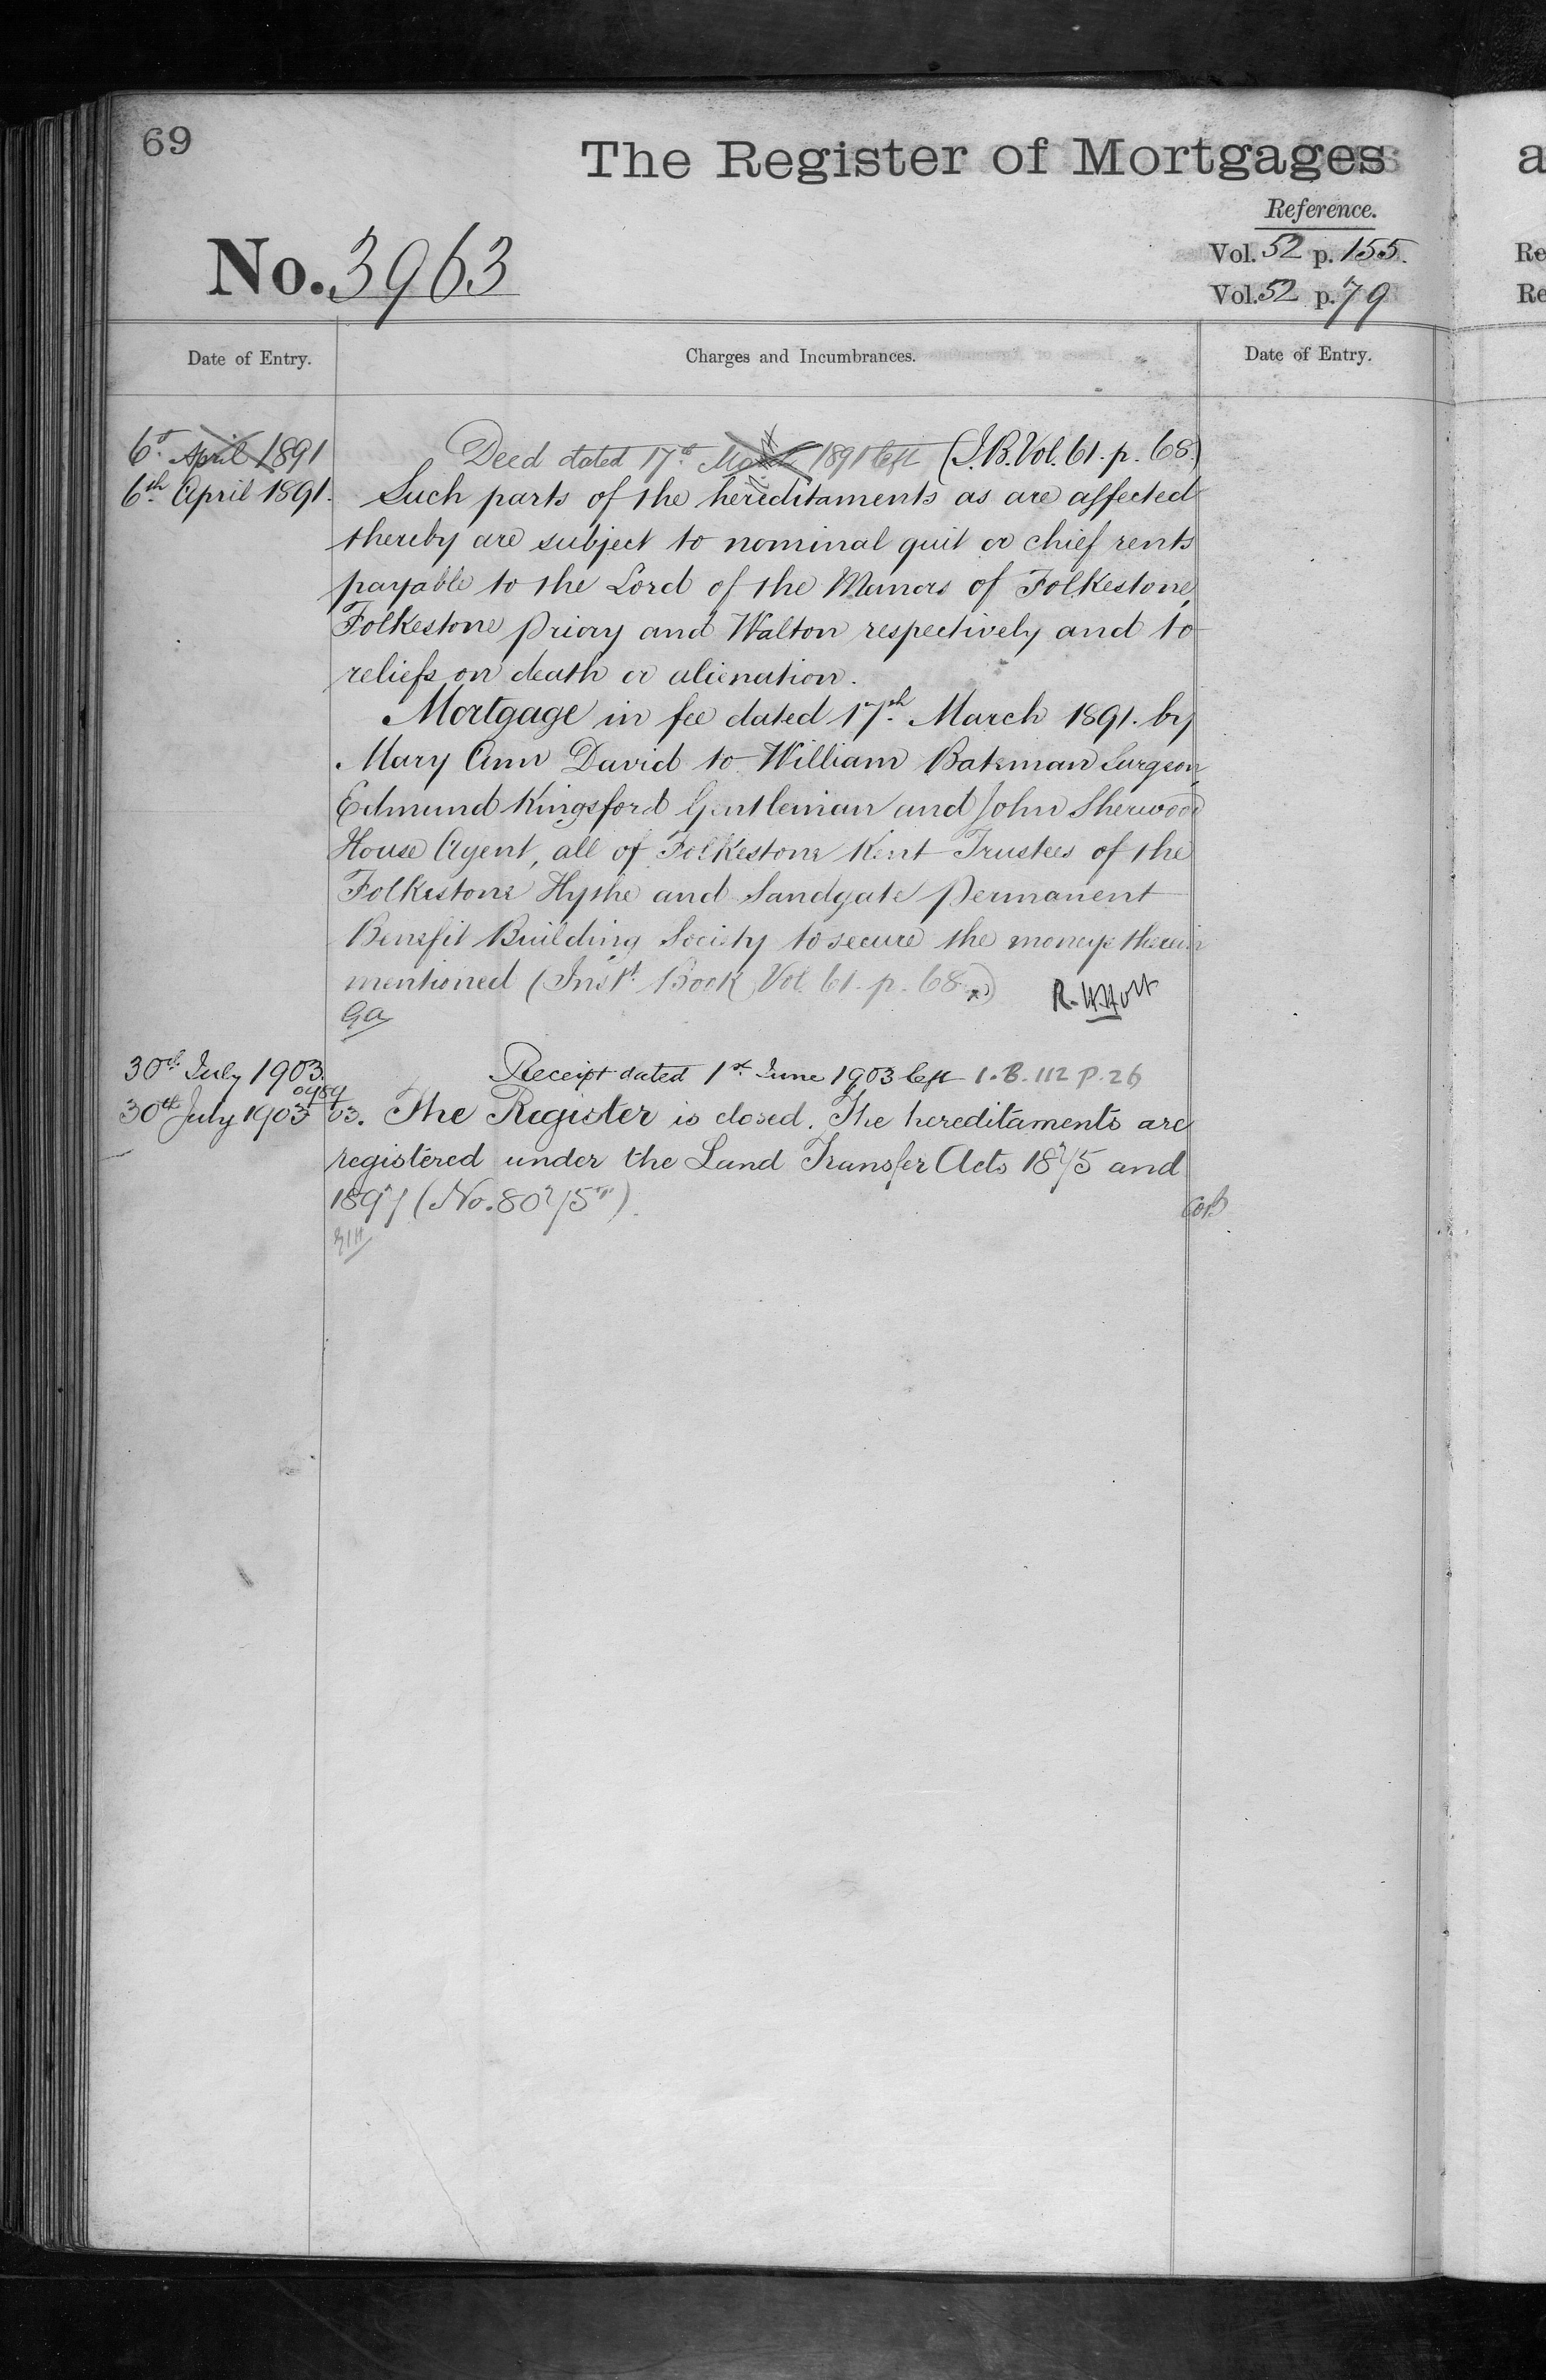 69
The Register of Mortgages
a
Reference.
No. 3963
Vol. 52 p. 155.
Re
Vol. 52 p. 79
Re
Date of Entry.
Charges and Incumbrances.
Date of Entry.
6th April 1891
Deed dated 17th March 1891 left (I.B. Vol. 61. p. 68.)
6th April 1891.
Such parts of the hereditaments as are affected
thereby are subject to nominal quit or chief rents
payable to the Lord of the Manors of Folkestone,
Folkestone Priory and Walton respectively and to
reliefs on death or alienation.
Mortgage in fee dated 17th March 1891. by
Mary Ann David to William Bateman Surgeon,
Edmund Kingsford Gentleman and John Sherwood
House Agent, all of Folkestone Kent Trustees of the
Folkestone Hythe and Sandgate Permanent
Benefit Building Society to secure the moneys therein
mentioned (Inst. Book Vol. 61. p. 68.)
GA
30th July 1903.
Receipt dated 1st June 1903 left I.B. 112 P. 26
30th July 1903
03. The Register is closed. The hereditaments are
registered under the Land Transfer Acts 1875 and
1897 (No. 80275).